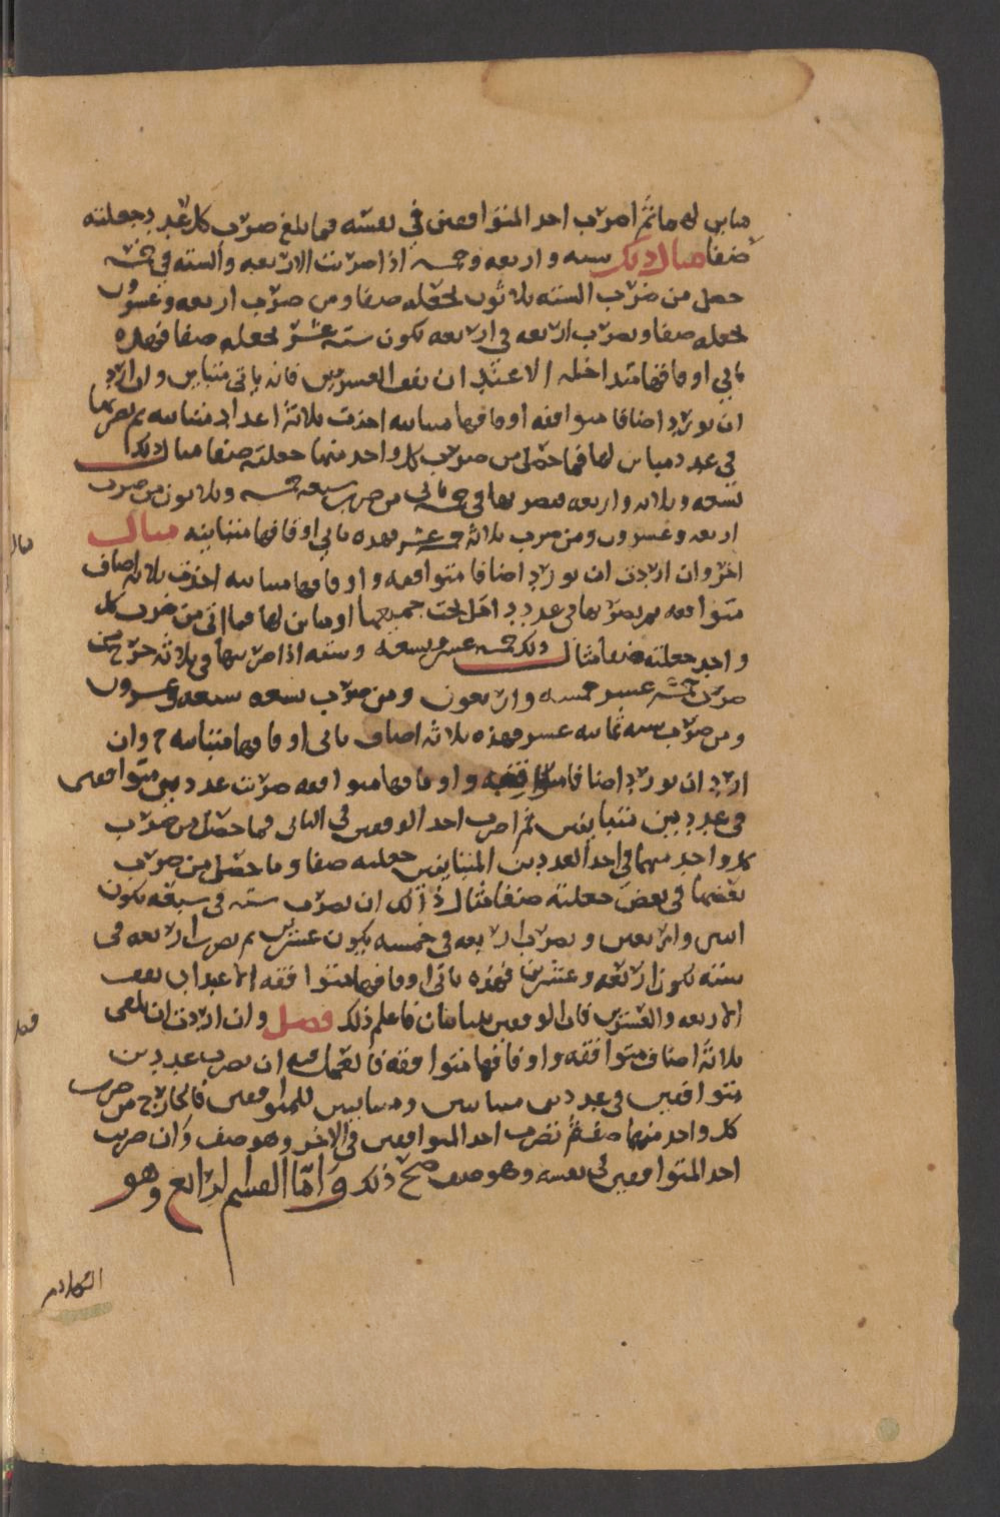 مباين لهما ثم اضرب احد المتوافقين في نفسه فما بلغ ضرب كل عدد وجعلته
صنفا مثال ذلك سته واربعه وخمسه اذا ضربت الاربعه والسته في خمسه
حصل من ضرب السته ثلاثون تجعله صنفا ومن ضرب اربعه وعشرون
تجعله صنفا وبضرب اربعه في اربعه يكون سته عشر تجعله صنفا فهذه
ياتي اوفاقها متداخله الا عند ان يقف العشرين فانه ياتي متباين وان اردت
ان تورد اصنافا متوافقه اوفاقها متباينه اخذت ثلاثة اعداد متباينه ثم تضربها
في عدد مباين لها فما حصل من ضرب كل واحد منها جعلته صنفا مثال ذلك
تسعه وثلاثه واربعه فتضربها في خمسه ياتي من ضرب سبعه خمسه وثلاثون من ضرب
اربعه وعشرون ومن ضرب ثلاثة خمسه عشر فهذه ياتي اوفاقها متباينه مثال
اخر وان اردت ان تورد اصنافا متوافقه واوفاقها متباينه اخذت ثلاثه اصناف
متوافقه ثم تضربها في عدد داخل تحت جميعها او مباين لها فما اتى من ضرب كل
واحد جعلته صنفا مثال ذلك خمسه عشر وتسعه وسته اذا ضربتها في ثلاثه خرج من
ضرب خمسه عشر خمسه واربعون ومن ضرب تسعه سبعه وعشرون
ومن ضرب سته ثمانيه عشر فهذه ثلاثه اصناف ياتي اوفاقها متباينه وان
اردت ان تورد اصنافا متوافقه واوفاقها متوافقه ضربت عددين متوافقين
في عددين متباينين ثم اضرب احد الوفقين في الثاني فما حصل من ضرب
كل واحد منهما في احد العددين المتباينين جعلته صنفا وما حصل من ضرب
بعضها في بعض جعلته صنفا مثال ذلك ان تضرب سته في سبعه يكون
اثنين واربعين وتضرب اربعه في خمسه يكون عشرين ثم تضرب اربعه في
سته تكون اربعه وعشرين فهذه ياتي اوفاقها متوافقه الا عند ان يقف
الاربعه والعشرين فان الوفقين يتباينان فاعلم ذلك فصل وان اردت ان تلقى
ثلاثة اصناف متوافقه واوفاقها متوافقه فالعمل فيه ان تضرب عددين
متوافقين في عددين متباينين ومباينين للمتوافقين فالخارج من ضرب
كل واحد منهما صنف ثم تضرب احد المتوافقين في الاخر وهو صنف وان ضرب
احد المتوافقين في نفسه وهو صنف صح ذلك واما القسم الرابع وهو
مثال
فصل